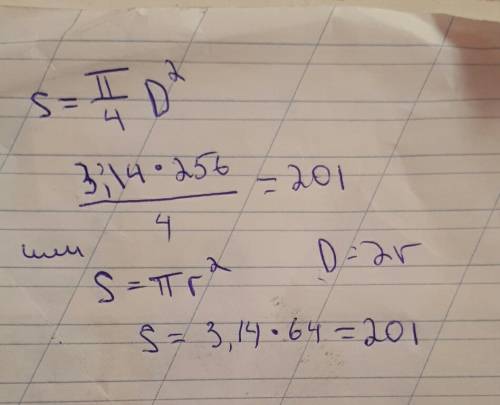 S = π/4 D²
3,14 · 256 / 4 = 201
или
S = πr² D = 2r
S = 3,14 · 64 = 201